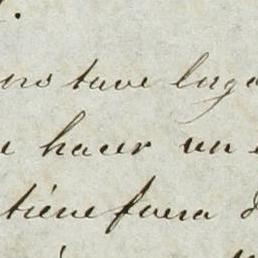 no tuve luga
e hacer un
tiene fuera d